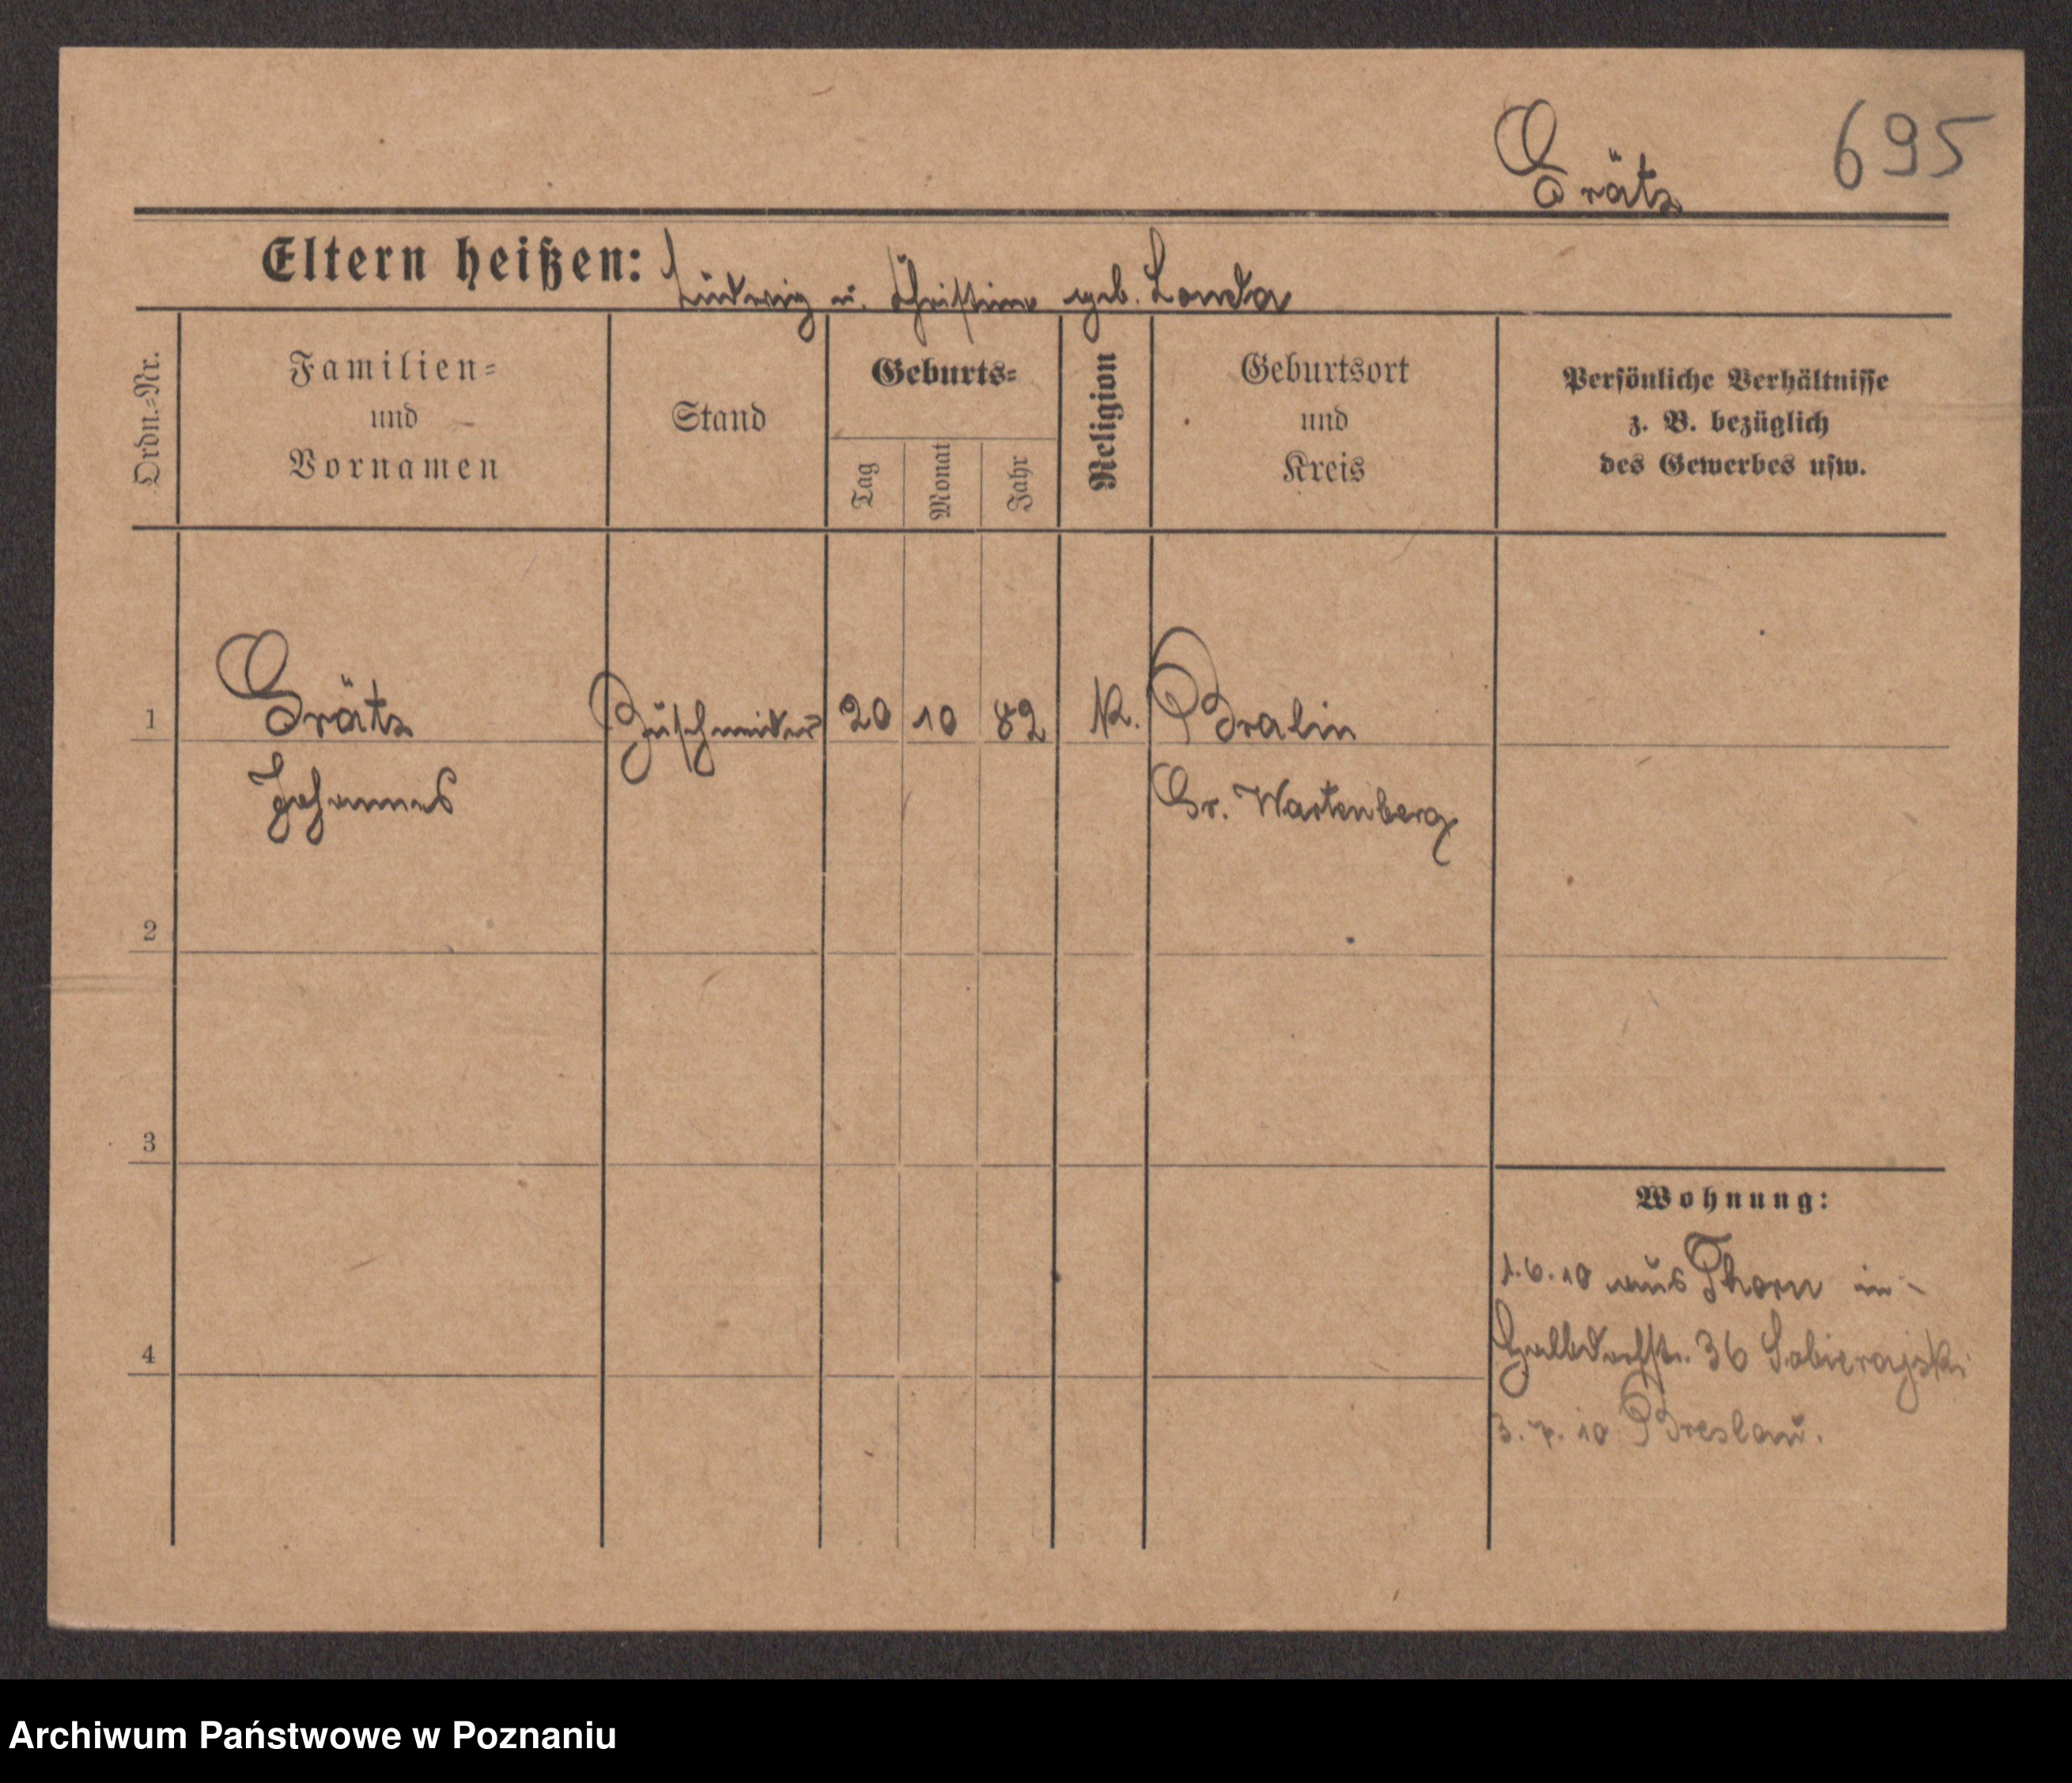 695
Grätz
Eltern heißen: Ludwig u. Christine geb. Londa
Ordn.=Nr.
Familien=
und
Vornamen
Stand
Geburts=
Tag
Monat
Jahr
Religion
Geburtsort
und
Kreis
Persönliche Verhältnisse
z. B. bezüglich
des Gewerbes usw.
1 Grätz Zuschneider 20 10 82 K. Bralin
Johannes Gr. Wartenberg
2
3
Wohnung:
1.6.10 aus Thorn in
Halbdorfstr. 36 Sobierajski
4
3. 7. 10 Breslau.
Archiwum Państwowe w Poznaniu